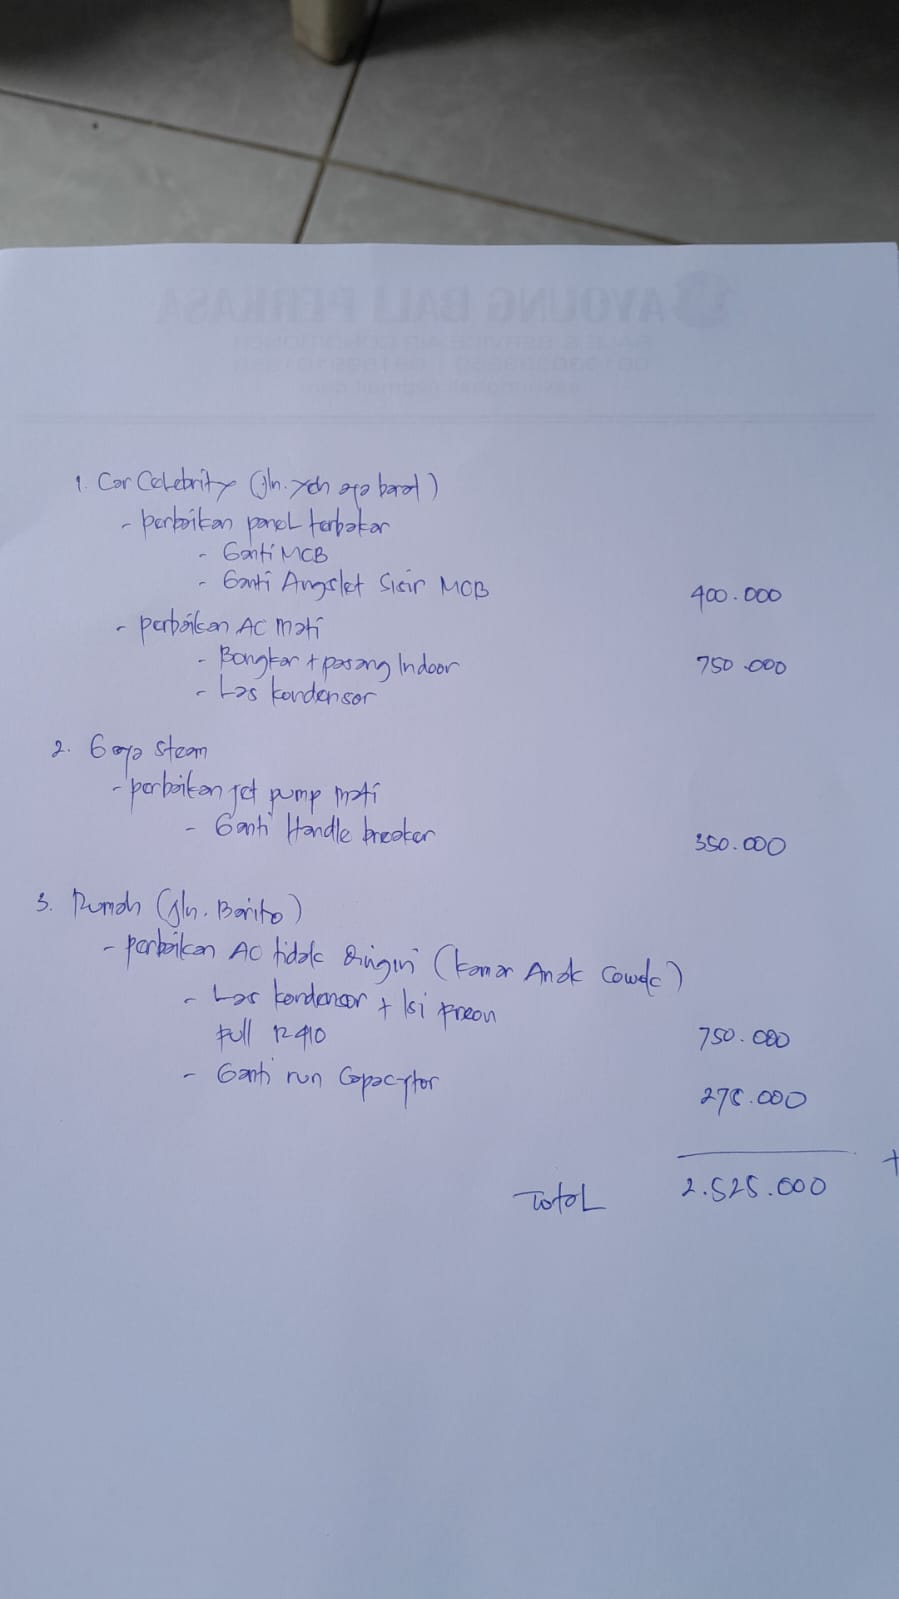 1. Car Celebrity (Jln.
- perbaikan panel terbakar
- Ganti MCB
- Ganti Angslet Sisir MCB 400.000
- perbaikan AC mati
- Bongkar + pasang Indoor 750.000
- Las kondensor
2. Gaya Steam
- perbaikan jet pump mati
- Ganti Handle breaker 350.000
3. Rumah (Jln. Barito)
- perbaikan AC tidak dingin (kamar Anak Cowok)
- Las kondensor + Isi freon
full R410 750.000
- Ganti run Capacytor 275.000
+
Total 2.525.000